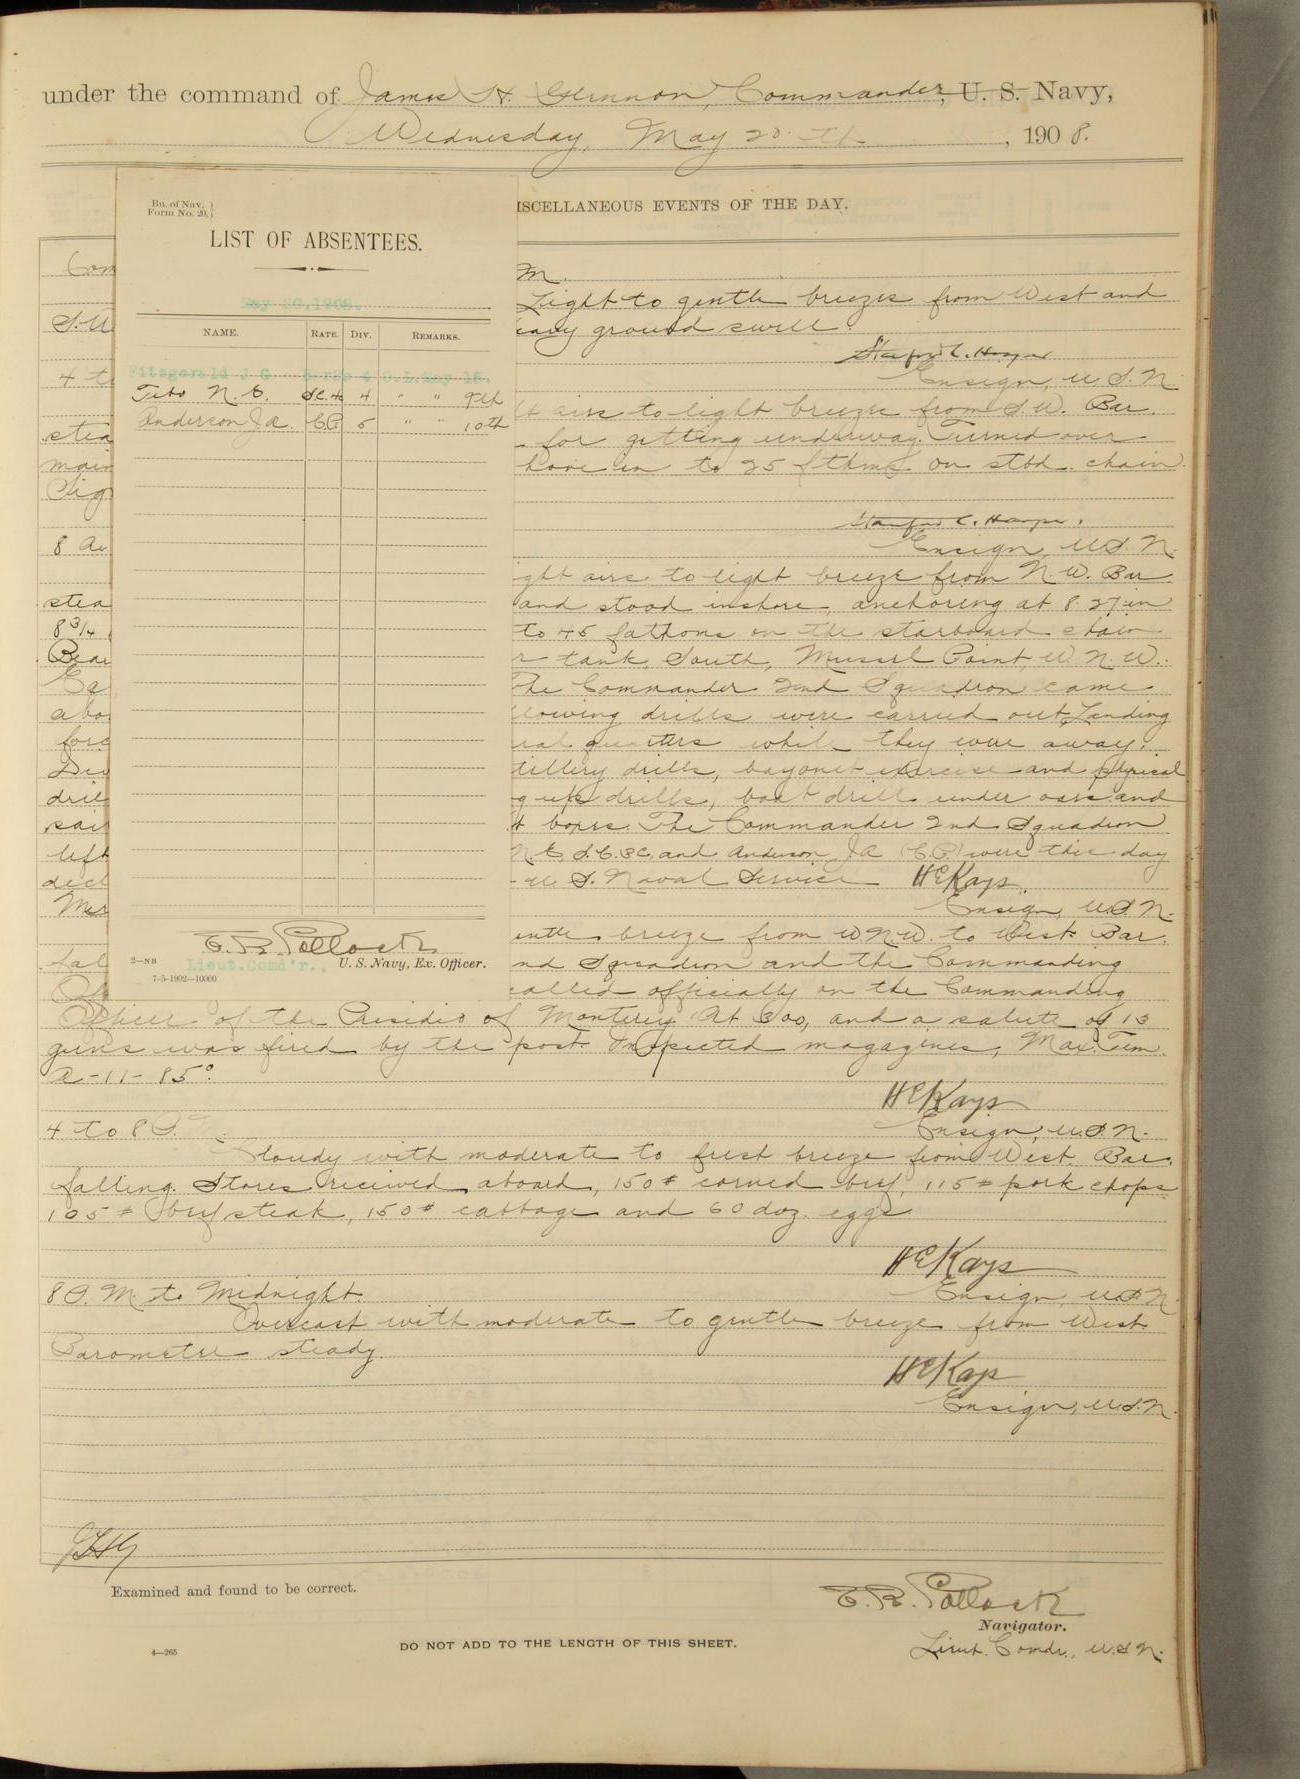 under the command of James H. Glennon, Commander, U. S. Navy,
Wednesday, May 20 th, 1908.
Bu. of Nav.
Form No. 20.
LIST OF ABSENTEES.
May 20, 1908.
NAME. RATE. DIV. REMARKS.
Fitzgerald J G 4 O.L. May 15.
Tibo N. E. S.C. 4c 4 " " 9th
Anderson J a. C.P. 5 " " 10th
E. R. Pollock
Lieut. Comd'r., U. S. Navy, Ex. Officer.
2—NB
7-5-1902—10000
ISCELLANEOUS EVENTS OF THE DAY.
Com
M.
Light to gentle breezes from West and
S.W
eavy ground swell.
Stanford C. Hooper
4 to
Ensign, U.S.N.
t airs to light breeze from S.W. Bar.
stea
for getting underway. Turned over
main
hove in to 25 fthms on stbd. chain.
Sig
Stanford C. Hooper.
8 a
Ensign, U.S.N.
ght airs to light breeze from N.W. Bar
stea
and stood inshore, anchoring at 8.27 in
8 3/4
to 45 fathoms on the starboard chain
Bear
r tank South, Mussel Point, W.N.W.
The Commander 2nd Squadron came
abo
llowing drills were carried out, Landing
forc
ral quarters while they were away.
Div
tillery drills, bayonet exercise and physical
dril
g up drills, boat drill under oars and
sail
t boxes. The Commander 2nd Squadron
left
N.E. S.C. 3C. and Anderson, J a (C.P.) were this day
decl
U.S. Naval Service
H E Kays.
Mer
Ensign, U.S.N.
entle breeze from W.N.W. to West. Bar.
fal
nd Squadron and the Commanding
called officially on the Commanding
Officer of the Presidio of Monterey at 3 00, and a salute of 13
guns was fired by the post. Inspected magazines, Max. Tem.
A-11-85°.
H E Kays
4 to 8 P.M.
Ensign, U.S.N.
Cloudy with moderate to fresh breeze from West. Bar.
falling. Stores received aboard, 150# corned beef, 115# pork chops
105# beefsteak, 150# cabbage and 60 doz. eggs
H E Kays
8 P.M. to Midnight.
Ensign, U.S.N.
Overcast with moderate to gentle breeze from West.
Barometer steady.
H E Kays
Ensign, U.S.N.
Examined and found to be correct.
E. R. Pollock
Navigator.
Lieut. Comdr., U.S.N.
4—265
DO NOT ADD TO THE LENGTH OF THIS SHEET.